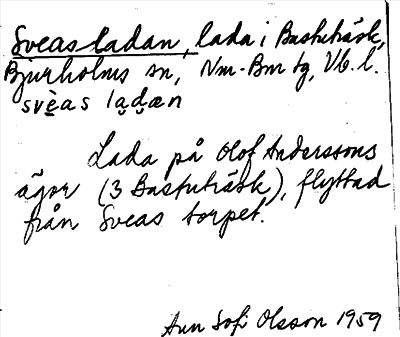 Sveas ladan, lada i Bastuträsk,
Bjurholms sn, Nm-Bm tg, Vb. l.
svẹ̀as lạdæn
Lada på Olof Anderssons
ägor (3 Bastuträsk), flyttad
från Sveas torpet.
Ann Sofi Olsson 1959